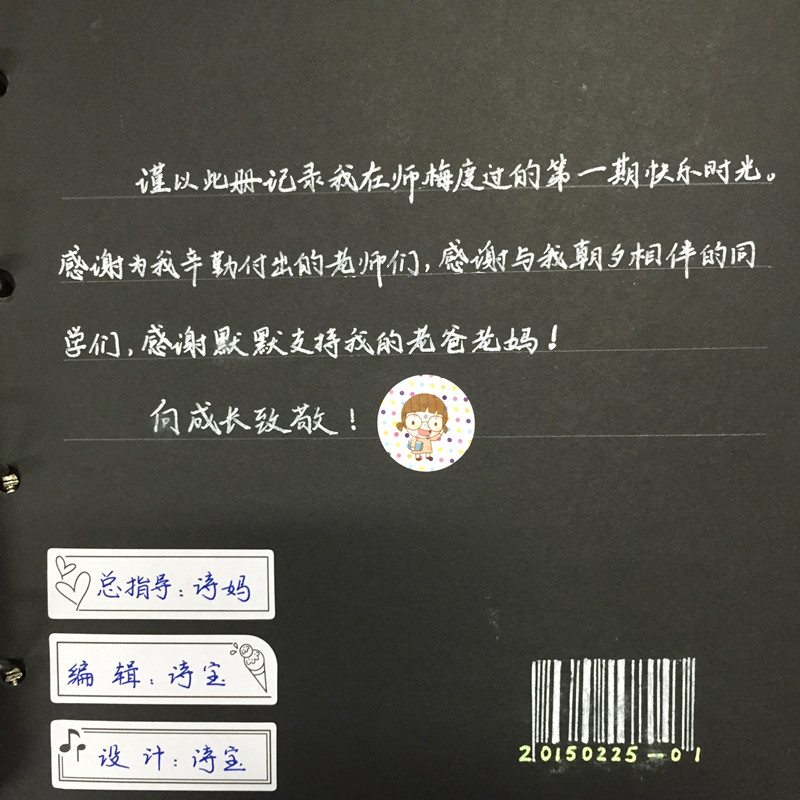 谨以此册记录我在师梅度过的第一期快乐时光。
感谢为我辛勤付出的老师们,感谢与我朝夕相伴的同
学们,感谢默默支持我的老爸老妈!
向成长致敬!
总指导:诗妈
编 辑:诗宝
设 计:诗宝
20150225-01